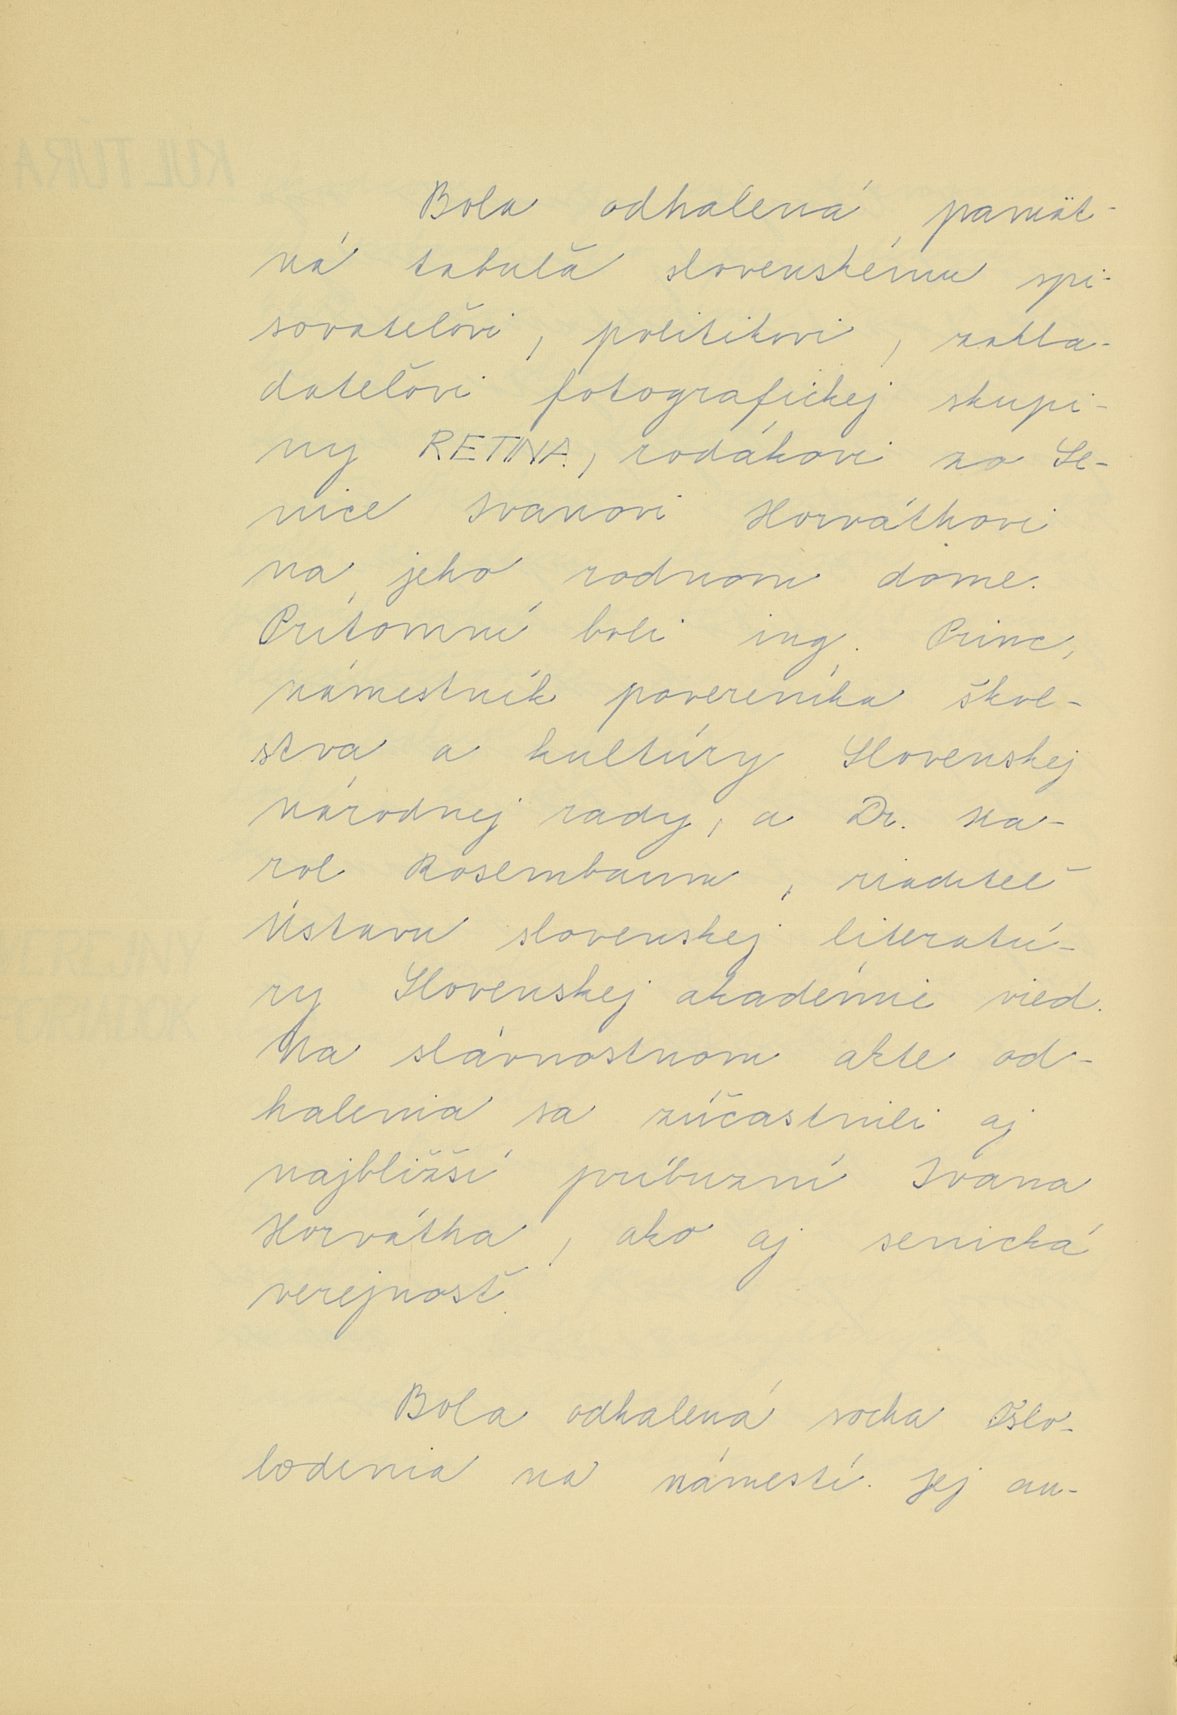 Bola odhalená pamät-
ná tabuľa slovenskému spi-
sovateľovi, politikovi, zakla-
dateľovi fotografickej skupi-
ny RETINA, rodákovi zo Se-
nice Ivanovi Horváthovi
na jeho rodnom dome.
Prítomní boli ing. Princ,
námestník povereníka škol-
stva a kultúry Slovenskej
národnej rady, a Dr. Ka-
rol Rosembaum, riaditeľ
Ústavu slovenskej literatú-
ry Slovenskej akadémie vied.
Na slávnostnom akte od-
halenia sa zúčastnili aj
najbližší príbuzní Ivana
Horvátha, ako aj senická
verejnosť.
Bola odhalená socha Oslo-
bodenia na námestí. Jej au-